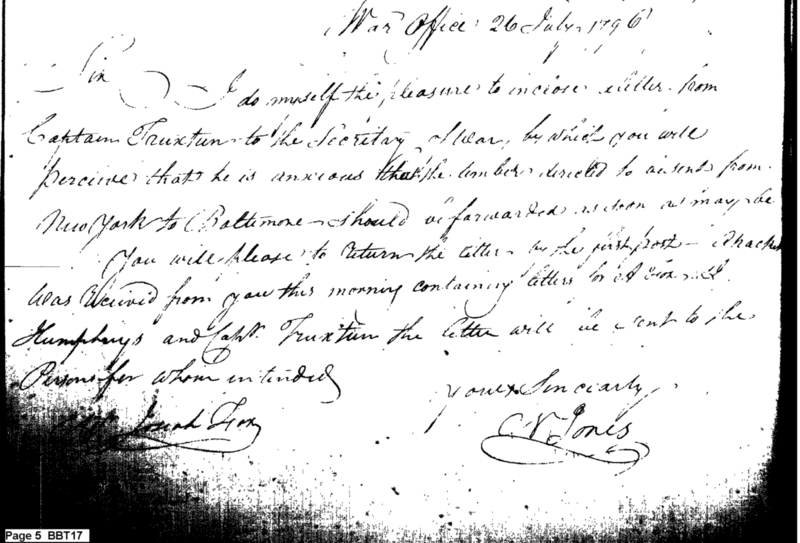 War Office 26 July 1796
Sir
I do myself the pleasure to inclose a letter from
Captain Truxtun to the Secretary of War, by which you will
perceive that he is anxious that the timber directed to be sent from
New York to Baltimore should be forwarded as soon as may be
You will please to return the letter by the first post – A packet
was received from you this morning containing letters for J.
Humphrys and Capt. Truxtun the letter will be sent to the
Persons for whom intended
yours Sincerly
Josiah Fox
C. V. Jones
Page 5 BBT17